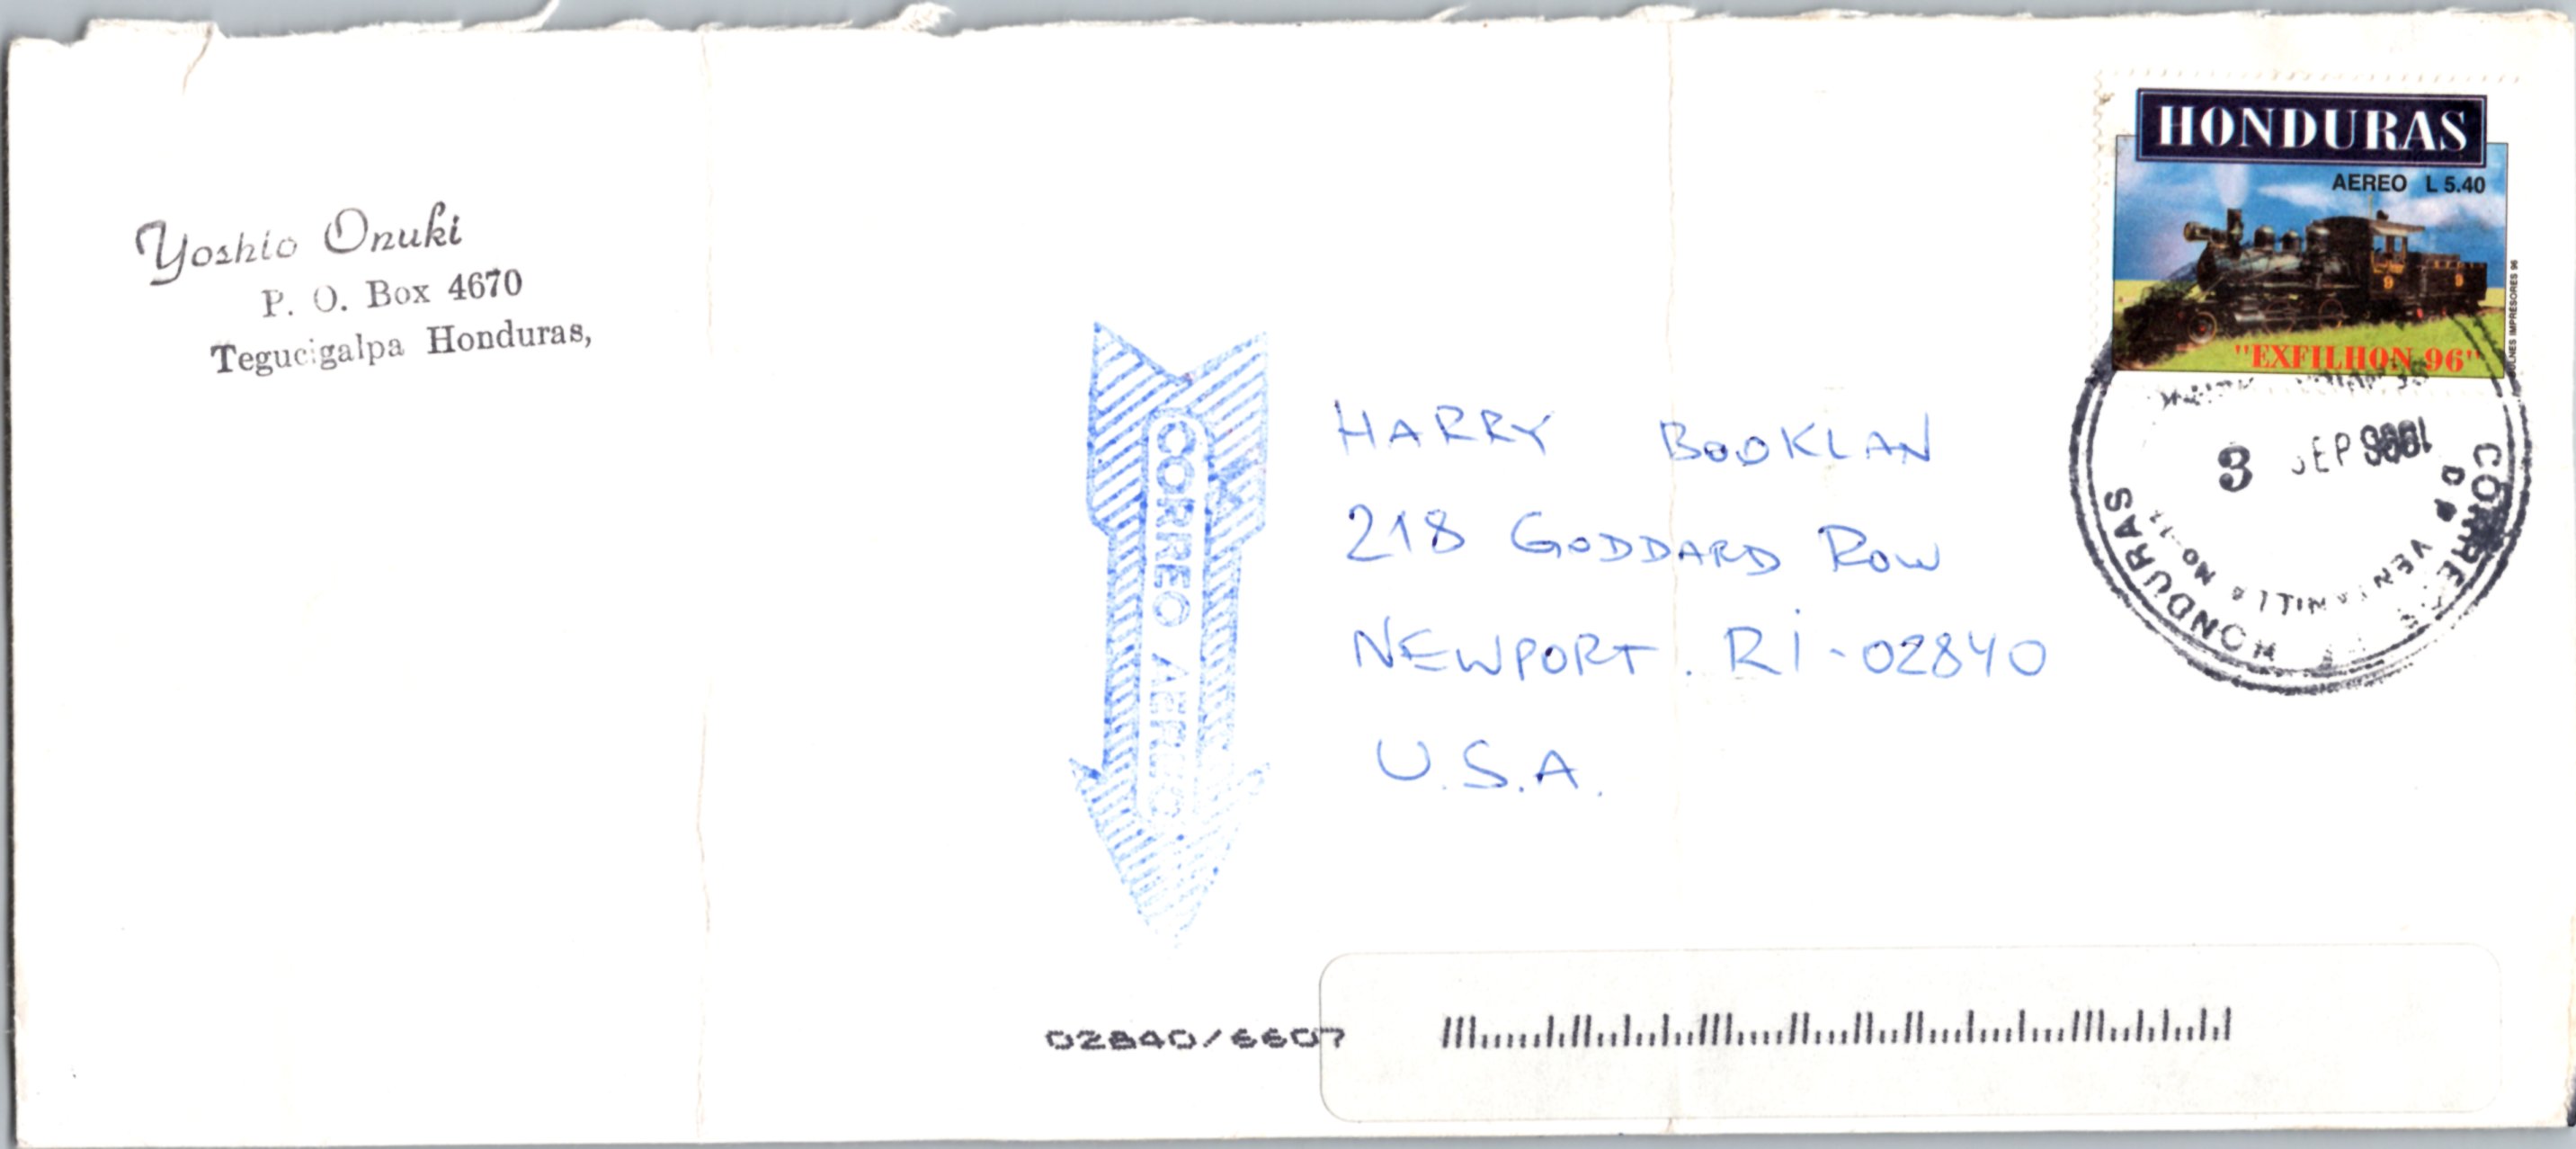 Yoshio Onuki
P. O. Box 4670
Tegucigalpa Honduras,
HONDURAS
AEREO L 5.40
"EXFILHON 96"
IMPRESORES 96
3 SEP 1996
CORREO
VENTANILLA No.
HONDURAS
CORREO AEREO
HARRY BOOKLAN
218 GODDARD ROW
NEWPORT. RI-02840
U.S.A.
02840/6607